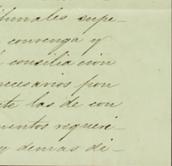 bunales supe-
convenga y
consiliacion
necesarios pon
te las de con
mentos requeri-
y demas di-